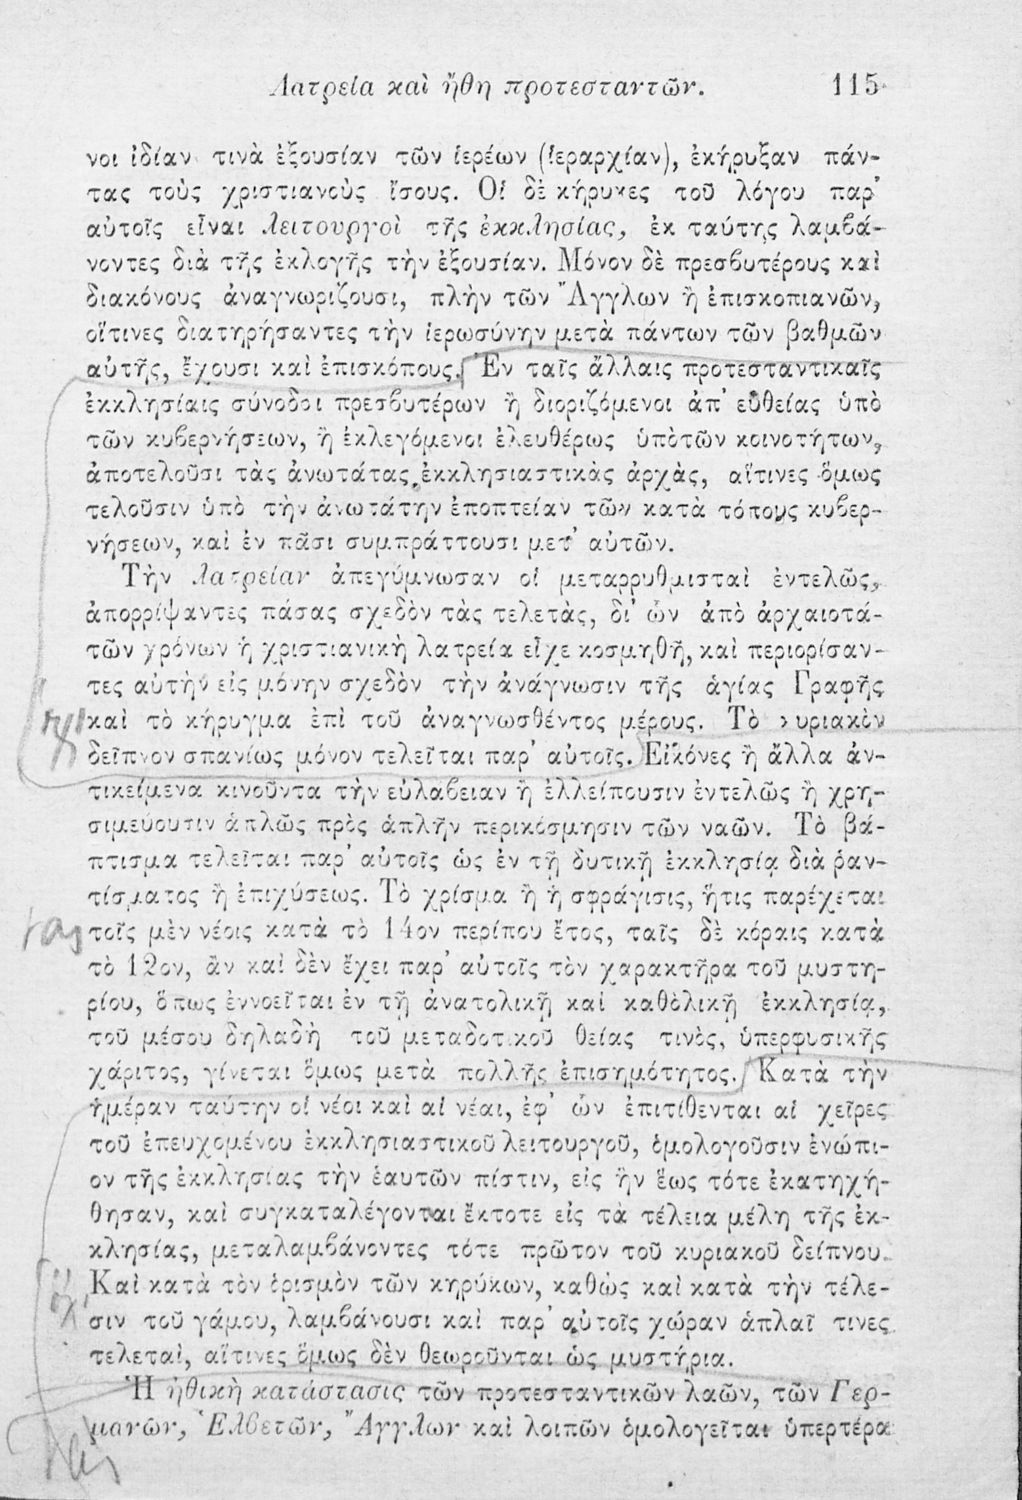 Λατρεία καὶ ἤθη προτεσταντῶν. 115
νοι ἰδίαν τινὰ ἐξουσίαν τῶν ἱερέων (ἱεραρχίαν), ἐκήρυξαν πάν-
τας τοὺς χριστιανοὺς ἴσους. Οἱ δὲ κήρυκες τοῦ λόγου παρ’
αὐτοῖς εἶναι λειτουργοὶ τῆς ἐκκλησίας, ἐκ ταύτης λαμβά-
νοντες διὰ τῆς ἐκλογῆς τὴν ἐξουσίαν. Μόνον δὲ πρεσβυτέρους καὶ
διακόνους ἀναγνωρίζουσι, πλὴν τῶν Ἄγγλων ἢ ἐπισκοπιανῶν,
οἵτινες διατηρήσαντες τὴν ἱερωσύνην μετὰ πάντων τῶν βαθμῶν
αὐτῆς, ἔχουσι καὶ ἐπισκόπους. Ἐν ταῖς ἄλλαις προτεσταντικαῖς
ἐκκλησίαις σύνοδοι πρεσβυτέρων ἢ διοριζόμενοι ἀπ’ εὐθείας ὑπὸ
τῶν κυβερνήσεων, ἢ ἐκλεγόμενοι ἐλευθέρως ὑπὸτῶν κοινοτήτων,
ἀποτελοῦσι τὰς ἀνωτάτας ἐκκλησιαστικὰς ἀρχὰς, αἵτινες ὅμως
τελοῦσιν ὑπὸ τὴν ἀνωτάτην ἐποπτείαν τῶν κατὰ τόπους κυβερ-
νήσεων, καὶ ἐν πᾶσι συμπράττουσι μετ’ αὐτῶν.
Τὴν λατρείαν ἀπεγύμνωσαν οἱ μεταρρυθμισταὶ ἐντελῶς,
ἀπορρίψαντες πάσας σχεδὸν τὰς τελετὰς, δι’ ὧν ἀπὸ ἀρχαιοτά-
τῶν χρόνων ἡ χριστιανικὴ λατρεία εἶχε κοσμηθῆ, καὶ περιορίσαν-
τες αὐτὴν εἰς μόνην σχεδὸν τὴν ἀνάγνωσιν τῆς ἁγίας Γραφῆς
καὶ τὸ κήρυγμα ἐπὶ τοῦ ἀναγνωσθέντος μέρους. Τὸ κυριακὸν
δεῖπνον σπανίως μόνον τελεῖται παρ’ αὐτοῖς. Εἰκόνες ἢ ἄλλα ἀν-
τικείμενα κινοῦντα τὴν εὐλάβειαν ἢ ἐλλείπουσιν ἐντελῶς ἢ χρη-
σιμεύουσιν ἁπλῶς πρὸς ἁπλῆν περικόσμησιν τῶν ναῶν. Τὸ βά-
πτισμα τελεῖται παρ’ αὐτοῖς ὡς ἐν τῇ δυτικῇ ἐκκλησίᾳ διὰ ῥαν-
τίσματος ἢ ἐπιχύσεως. Τὸ χρίσμα ἢ ἡ σφράγισις, ἥτις παρέχεται
τοῖς μὲν νέοις κατὰ τὸ 14ον περίπου ἔτος, ταῖς δὲ κόραις κατὰ
τὸ 12ον, ἂν καὶ δὲν ἔχει παρ’ αὐτοῖς τὸν χαρακτῆρα τοῦ μυστη-
ρίου, ὅπως ἐννοεῖται ἐν τῇ ἀνατολικῇ καὶ καθολικῇ ἐκκλησίᾳ,
τοῦ μέσου δηλαδὴ τοῦ μεταδοτικοῦ θείας τινὸς, ὑπερφυσικῆς
χάριτος, γίνεται ὅμως μετὰ πολλῆς ἐπισημότητος. Κατὰ τὴν
ἡμέραν ταύτην οἱ νέοι καὶ αἱ νέαι, ἐφ’ ὧν ἐπιτίθενται αἱ χεῖρες
τοῦ ἐπευχομένου ἐκκλησιαστικοῦ λειτουργοῦ, ὁμολογοῦσιν ἐνώπι-
ον τῆς ἐκκλησίας τὴν ἑαυτῶν πίστιν, εἰς ἣν ἕως τότε ἐκατηχή-
θησαν, καὶ συγκαταλέγονται ἔκτοτε εἰς τὰ τέλεια μέλη τῆς ἐκ-
κλησίας, μεταλαμβάνοντες τότε πρῶτον τοῦ κυριακοῦ δείπνου.
Καὶ κατὰ τὸν ὁρισμὸν τῶν κηρύκων, καθὼς καὶ κατὰ τὴν τέλε-
σιν τοῦ γάμου, λαμβάνουσι καὶ παρ’ αὐτοῖς χώραν ἁπλαῖ τινες
τελεταὶ, αἵτινες ὅμως δὲν θεωροῦνται ὡς μυστήρια.
Ἡ ἠθικὴ κατάστασις τῶν προτεσταντικῶν λαῶν, τῶν Γερ-
μανῶν, Ἑλβετῶν, Ἄγγλων καὶ λοιπῶν ὁμολογεῖται ὑπερτέρα